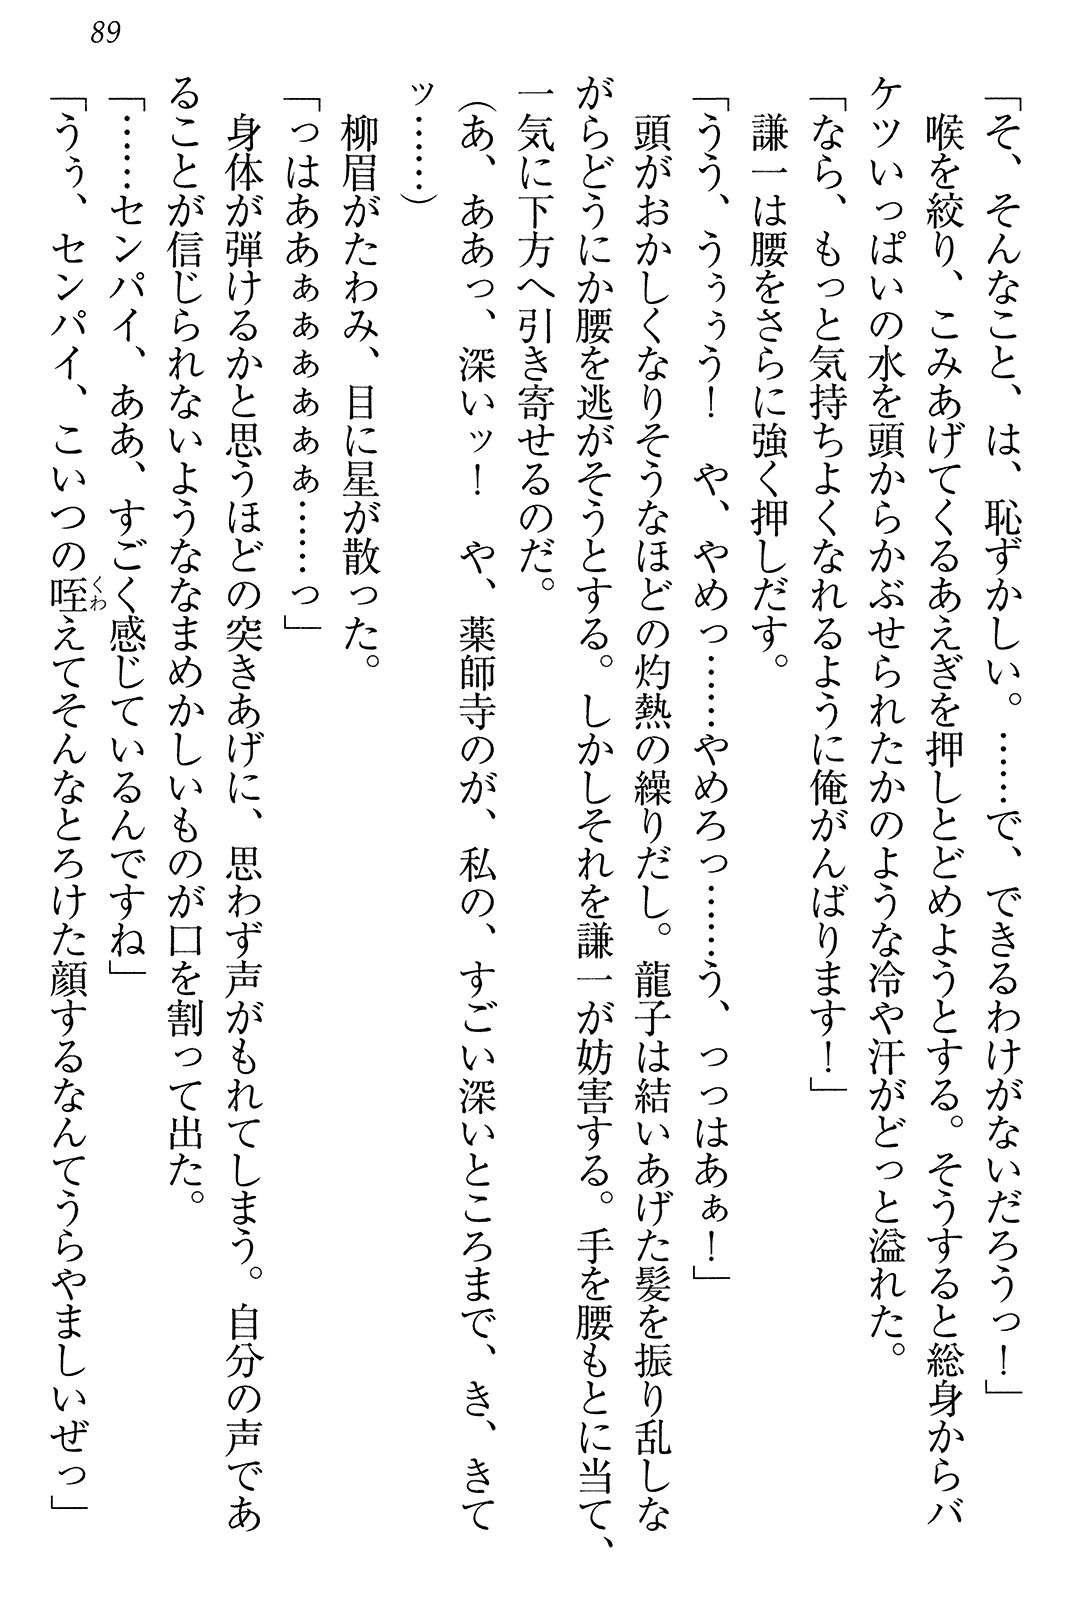 89
「そ、そんなこと、は、恥ずかしい。……で、できるわけがないだろうっ！」
　喉を絞り、こみあげてくるあえぎを押しとどめようとする。そうすると総身からバ
ケツいっぱいの水を頭からかぶせられたかのような冷や汗がどっと溢れた。
「なら、もっと気持ちよくなれるように俺がんばります！」
　謙一は腰をさらに強く押しだす。
「うう、うぅぅう！　や、やめっ……やめろっ……う、っっはあぁ！」
　頭がおかしくなりそうなほどの灼熱の繰りだし。龍子は結いあげた髪を振り乱しな
がらどうにか腰を逃がそうとする。しかしそれを謙一が妨害する。手を腰もとに当て、
一気に下方へ引き寄せるのだ。
（あ、ああっ、深いッ！　や、薬師寺のが、私の、すごい深いところまで、き、きて
ッ……）
　柳眉がたわみ、目に星が散った。
「っはああぁぁぁぁぁぁ……っ」
　身体が弾けるかと思うほどの突きあげに、思わず声がもれてしまう。自分の声であ
ることが信じられないようななまめかしいものが口を割って出た。
「……センパイ、ああ、すごく感じているんですね」
「うぅ、センパイ、こいつの咥くわえてそんなとろけた顔するなんてうらやましいぜっ」